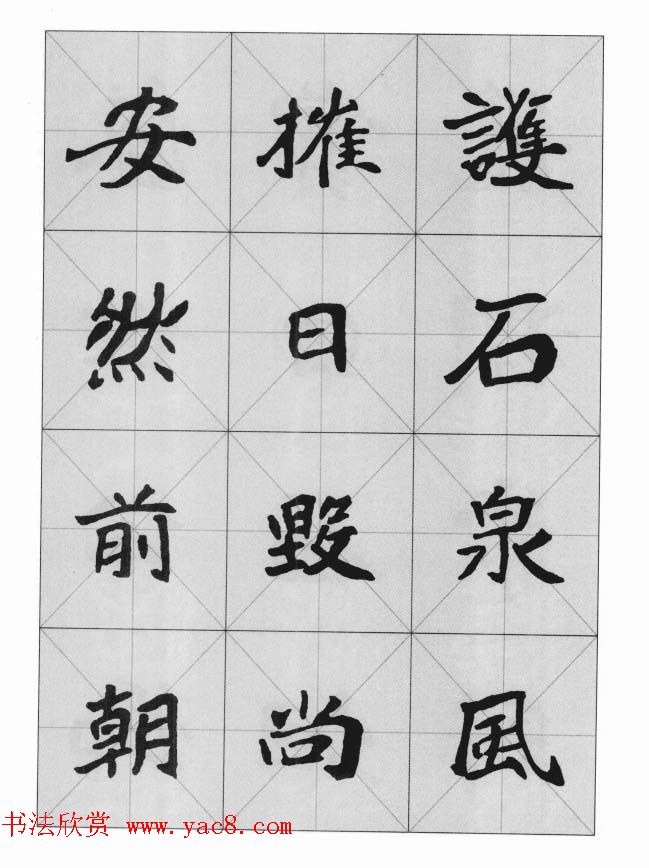 護石泉風
摧日毀尚
安然前朝
书法欣赏 www.yac8.com